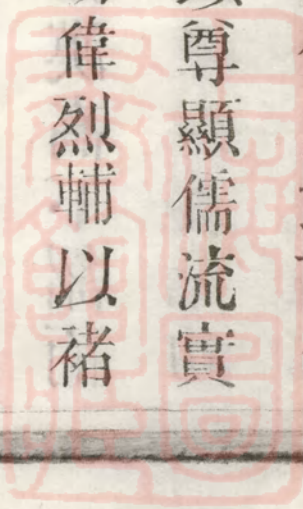 尊顯儒流實
偉烈輔以褚